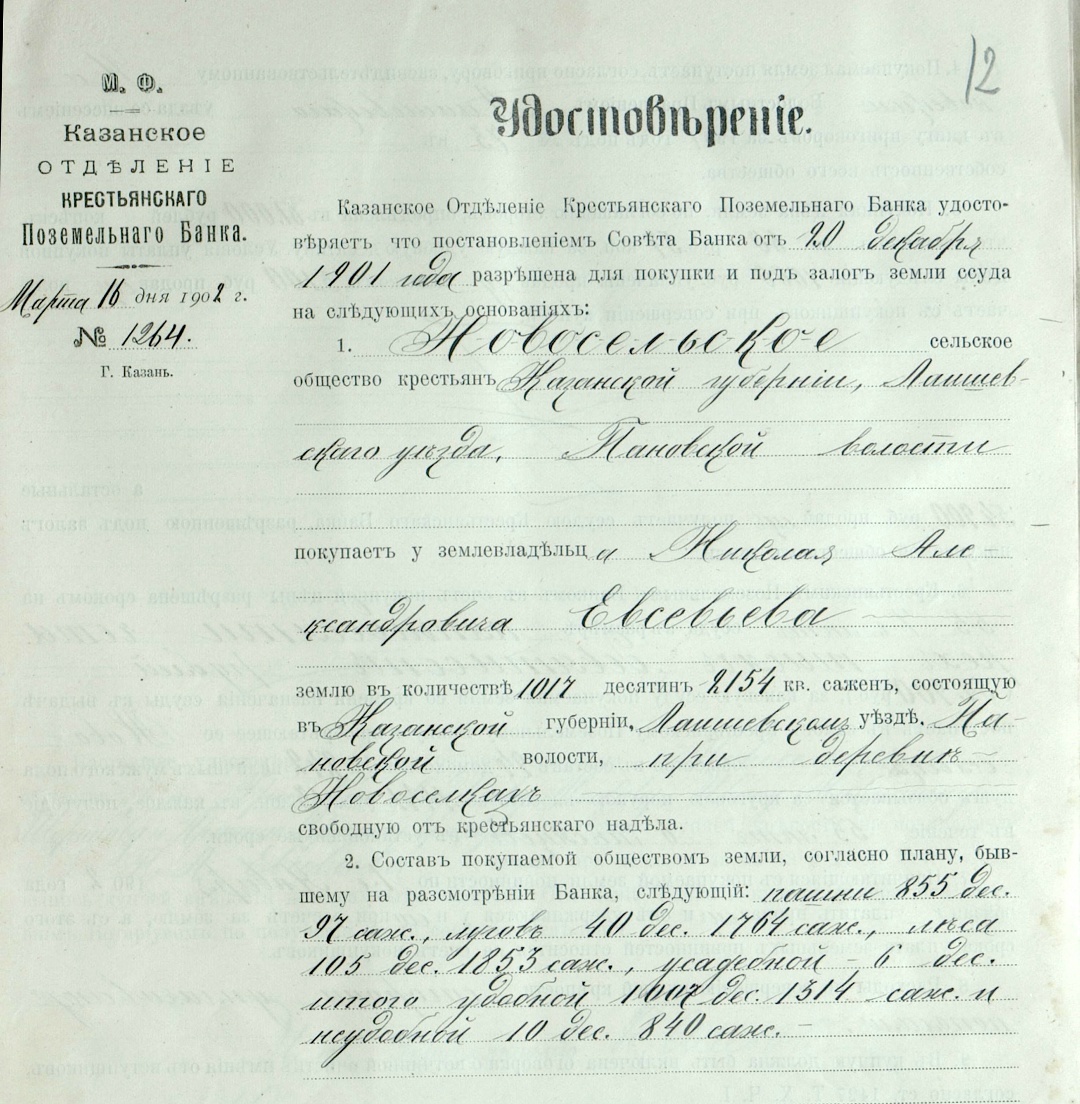 12
М. Ф.
Казанское
ОТДѢЛЕНІЕ
КРЕСТЬЯНСКАГО
Поземельнаго Банка.
Марта 16 дня 1902 г.
№ 1264.
Г. Казань.
Удостовѣреніе.
Казанское Отдѣленіе Крестьянскаго Поземельнаго Банка удосто-
вѣряетъ что постановленіемъ Совѣта Банка отъ 20 декабря
1901 года разрѣшена для покупки и подъ залогъ земли ссуда
на слѣдующихъ основаніяхъ:
1. Новосельское сельское
общество крестьянъ Казанской губерніи, Лаишев-
скаго уѣзда, Пановской волости
покупаетъ у землевладѣльца Николая Але-
ксандровича Евсевьева
землю въ количествѣ 1017 десятинъ 2154 кв. сажен, состоящую
въ Казанской губерніи, Лаишевскомъ уѣздѣ. Па-
новской волости, при деревнѣ
Новоселкахъ
свободную отъ крестьянскаго надѣла.
2. Составъ покупаемой обществомъ земли, согласно плану, быв-
шему на разсмотрѣніи Банка, слѣдующій: пашни 855 дес.
97 саж., луговъ 40 дес. 1764 саж., лѣса
105 дес. 1853 саж., усадебной - 6 дес.
итого удобной 1007 дес. 1314 саж. и
неудобной 10 дес. 840 саж. -